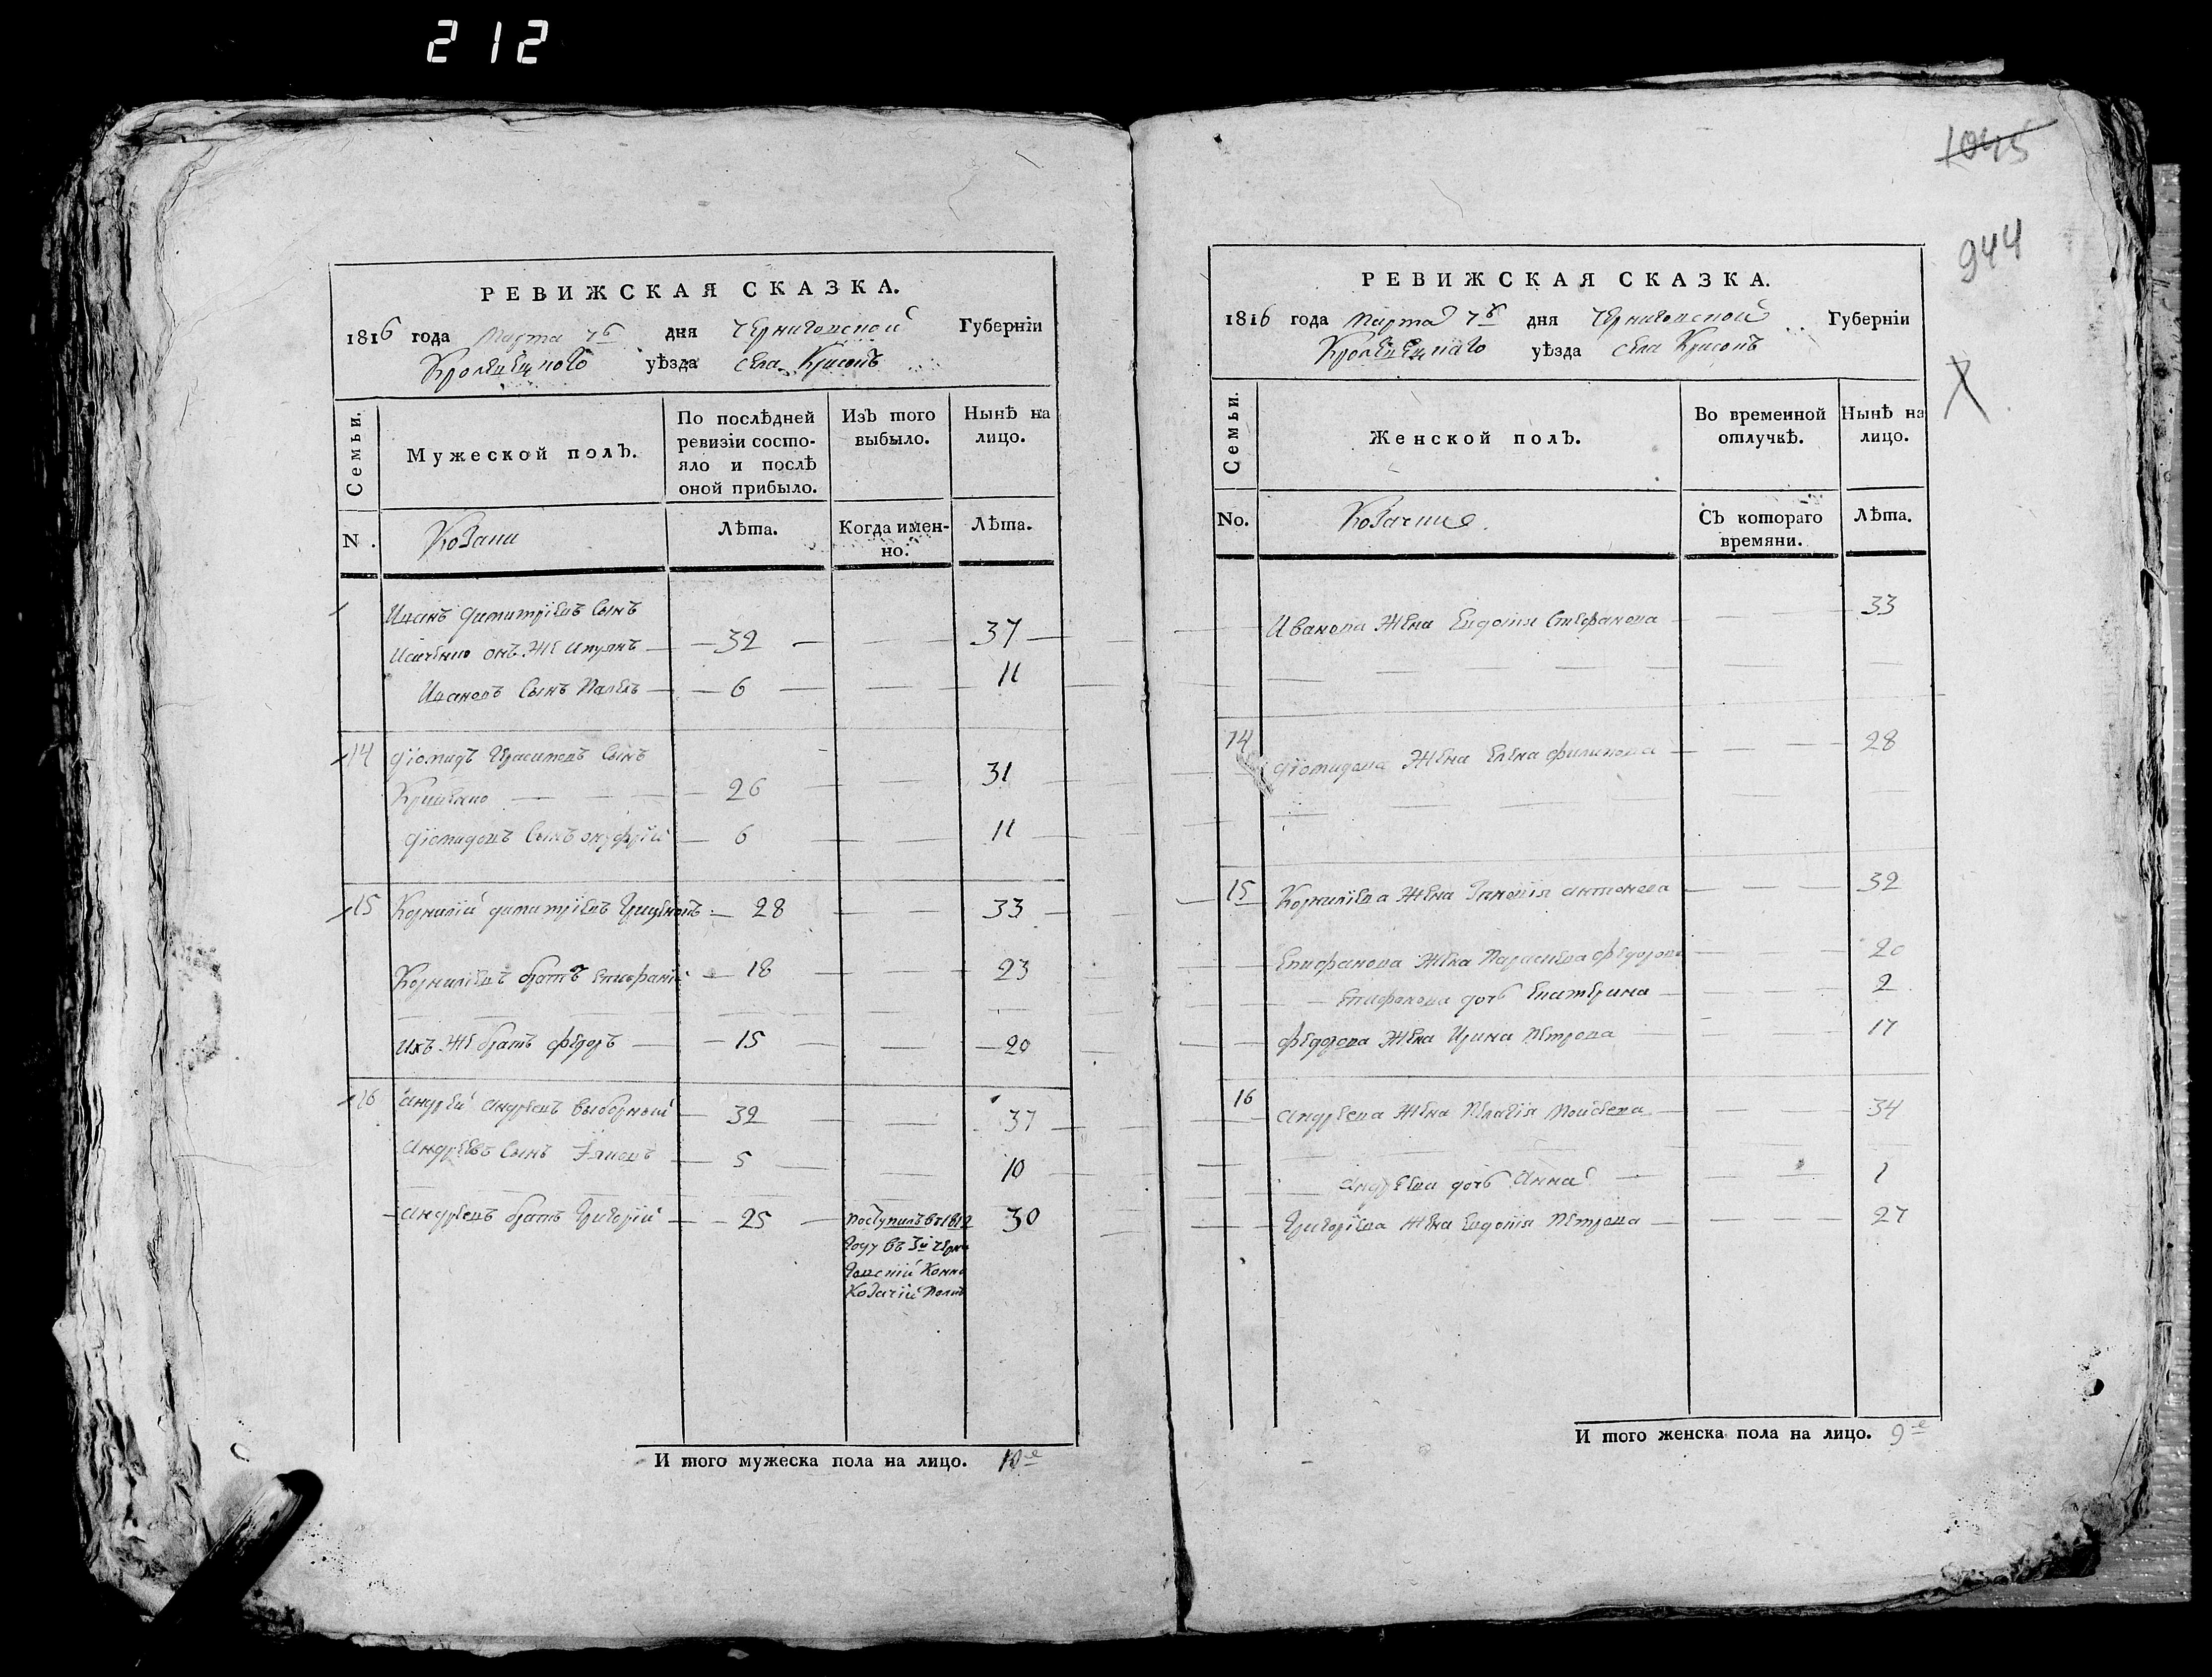 212
1045
944
РЕВИЖСКАЯ СКАЗКА.
1816 года Марта 7б дня Черниговской Губерніи
Кролевецкого уѣзда села
Семьи.
Мужеской полъ.
По послѣдней ревизіи состо-
яло и послѣ
оной прибыло.
Изъ того
выбыло.
Нынѣ на
лицо.
N.
Козаки
Лѣта.
Когда имен-
но.
Лѣта.
Иванъ Димитріевъ Сынъ
онъ же 32 37
Ивановъ Сынъ Павелъ 6 11
14 Діомидъ Герасимовъ Сынъ
26 31
Діомидовъ Сынъ Онуфрій 6 11
15 Корнилій Димитріевъ Гриценокъ 28 33
Корниліевъ братъ Епифаній 18 23
Ихъ же братъ Федоръ 15 20
16 Андрей Андреевъ Выборный 32 37
Андреевъ Сынъ 5 10
Андреевъ братъ Григорій 25 Поступилъ в 1812 30
году въ 3й Черни
говскій Конно
Козачій Полкъ
И того мужеска пола на лицо. 10е
РЕВИЖСКАЯ СКАЗКА.
1816 года Марта 7б дня Черниговской Губерніи
Кролевецкаго уѣзда села
Семьи.
Женской полъ.
Во временной
отлучкѣ.
Нынѣ на
лицо.
No.
Козачки
Съ котораго
времяни.
Лѣта.
Иванова Жена Евдокія Стефанова 33
14 Діомидова Жена Елена Филипова 28
15 Корниліева Жена Антонова 32
Епифанова Жена Параскева Федорова 20
Епифанова дочь Екатерина 2
Федорова Жена Ирина Петрова 17
16 Андреева Жена Пелагія Моисеева 34
Андреева дочь Анна 1
Григоріева Жена Евдокія Петрова 27
И того женска пола на лицо. 9е